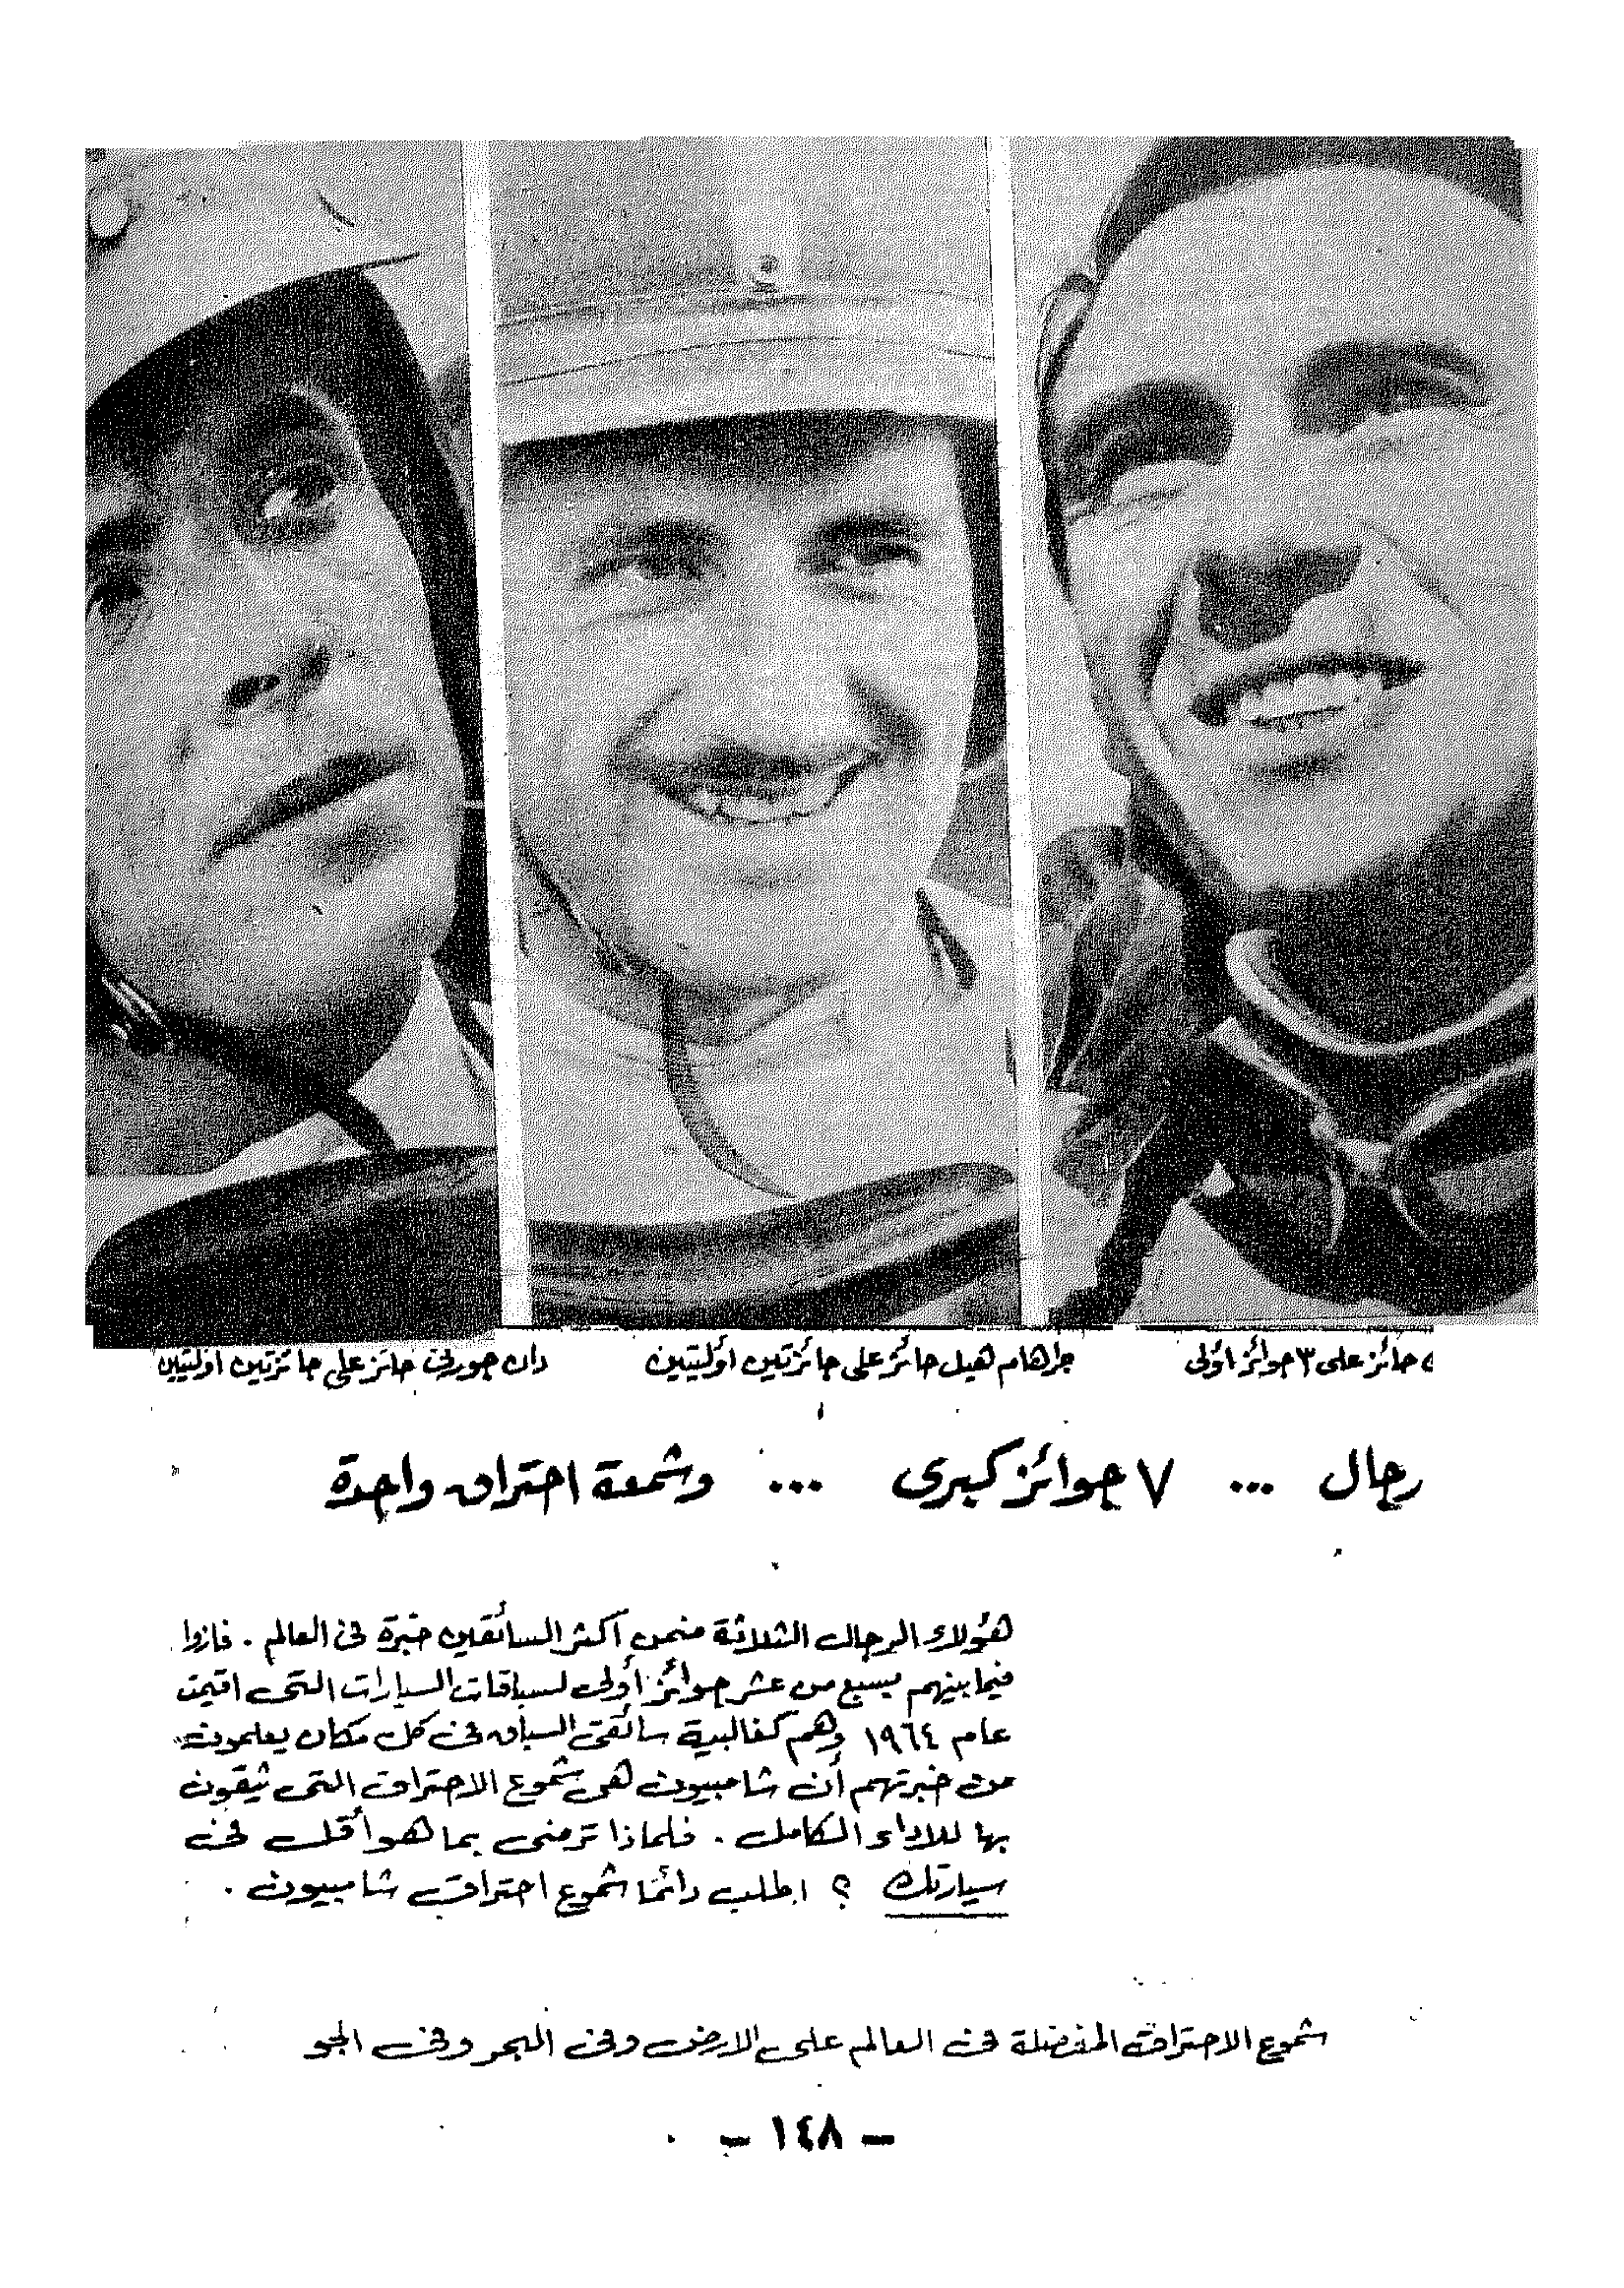 حائز على ٣ جوائز أولى
جراهام هيل حائز على جائزتين أوليتين
دان جورني حائز على جائزتين أوليتين
رجال ... ٧ جوائز كبرى ... وشمعة احتراق واحدة
هؤلاء الرجال الثلاثة منمن أكثر السائقين خبرة فى العالم . فازوا
فيما بينهم بسبع من عشر جوائز أولى لسباقات السيارات التى اقيمت
عام ١٩٦٤ وهم كغالبية سائقى السباق فى كل مكان يعلمون
من خبرتهم أن شامبيون هى شموع الاحتراق التى يثقون
بها للاداء الكامل . فلماذا ترضى بما هو أقل فى
سيارتك ؟ اطلب دائما شموع احتراق شامبيون .
شموع الاحتراق المفضلة فى العالم على الارض وفى البحر وفى الجو
- ١٤٨ -